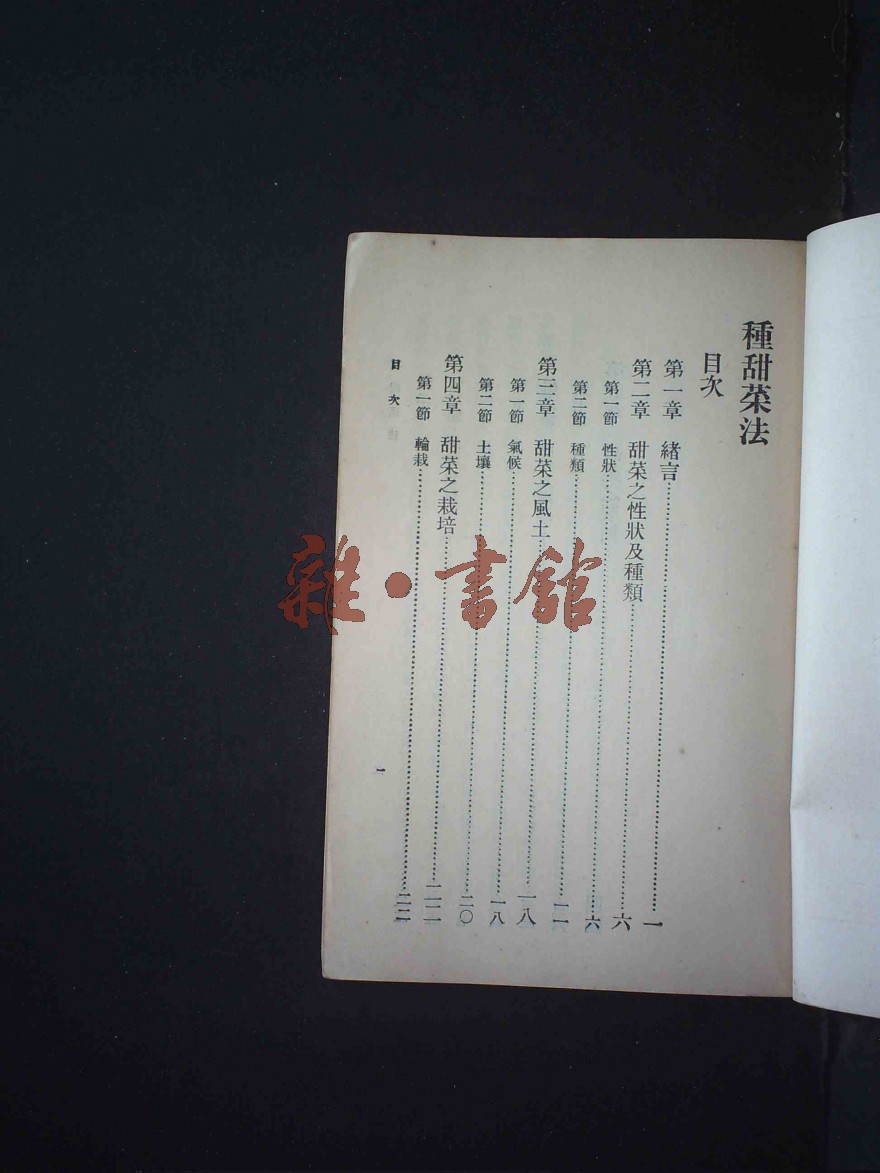 種甜菜法
目次
第一章 緒言……一
第二章 甜菜之性狀及種類……六
第一節 性狀……六
第二節 種類……一一
第三章 甜菜之風土……一八
第一節 氣候……一八
第二節 土壤……二〇
第四章 甜菜之栽培……二二
第一節 輪栽……二二
目次
一
雜·書館